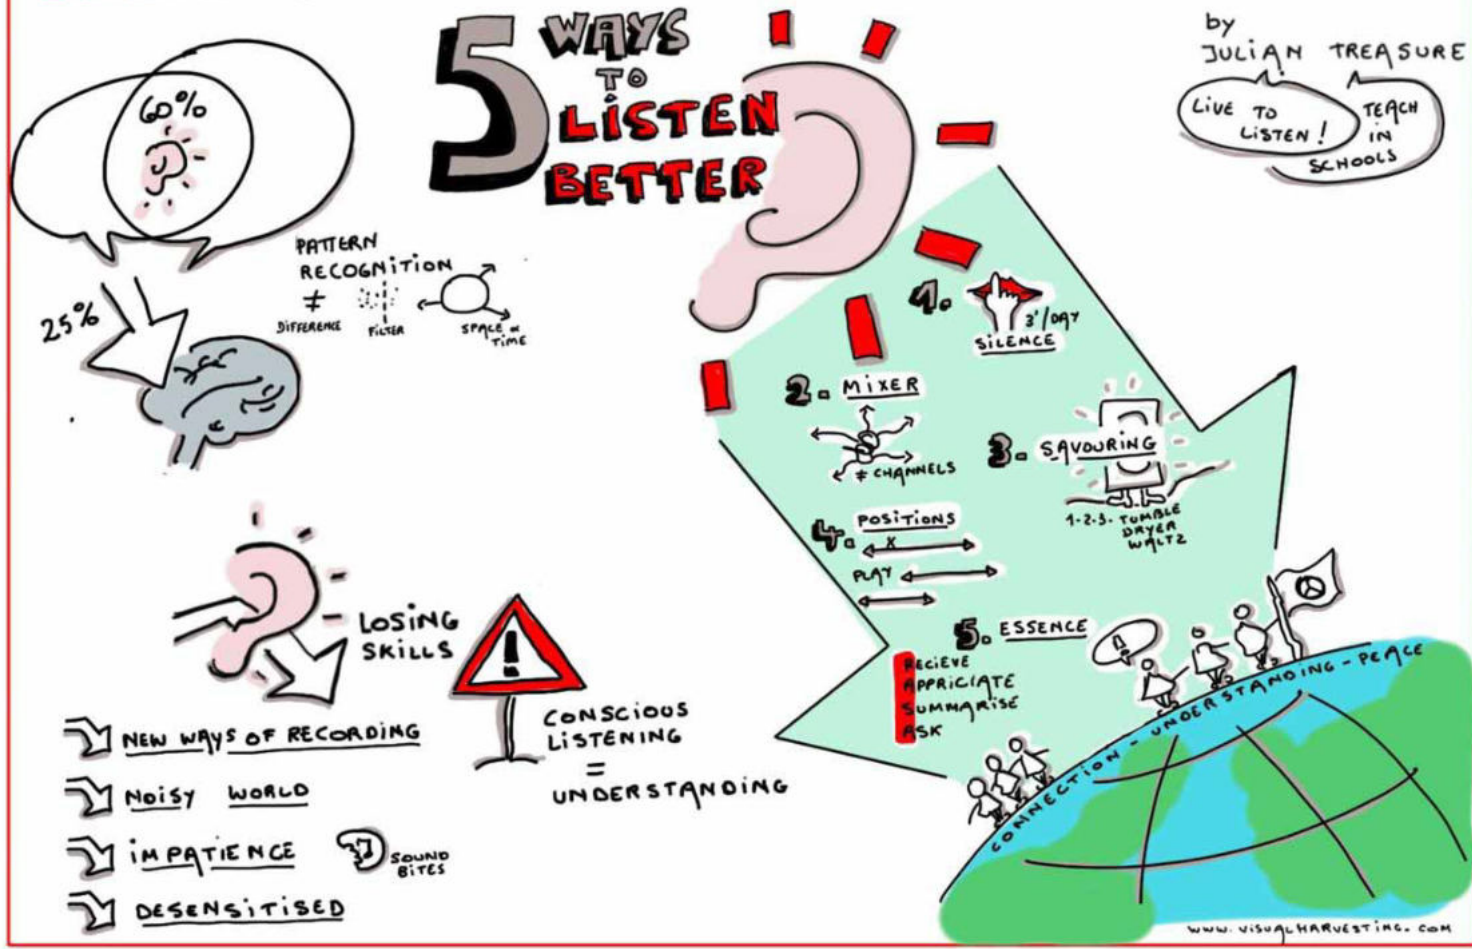 5 WAYS
TO
LISTEN
BETTER
by
JULIAN TREASURE
LIVE TO
LISTEN!
TEACH
IN
SCHOOLS
60%
25%
PATTERN
RECOGNITION
≠
DIFFERENCE
FILTER
SPACE
TIME
1.
3'/DAY
SILENCE
2. MIXER
≠ CHANNELS
3. SAVOURING
1-2-3- TUMBLE
DRYER
WALTZ
4. POSITIONS
X
PLAY
5. ESSENCE
RECIEVE
APPRICIATE
SUMMARISE
ASK
LOSING
SKILLS
!
CONSCIOUS
LISTENING
=
UNDERSTANDING
NEW WAYS OF RECORDING
NOISY WORLD
IMPATIENCE
SOUND
BITES
DESENSITISED
!
CONNECTION - UNDERSTANDING - PEACE
WWW.VISUALHARVESTING.COM